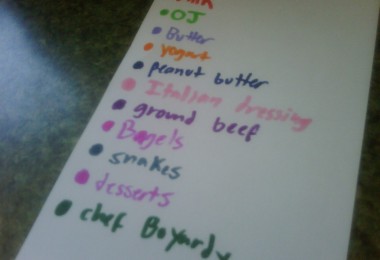 OJ
Butter
Yogurt
Peanut butter
Italian Dressing
ground beef
Bagels
snakes
desserts
chef Boyardy